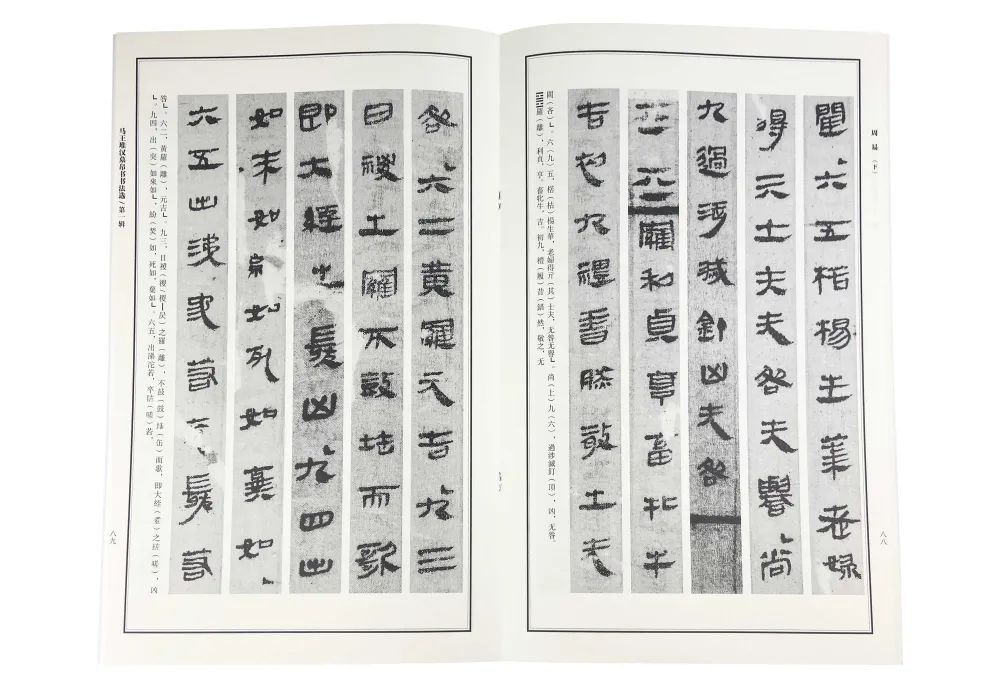 周易（下）
閵六五楛楊生華老婦
得亓士夫无咎无譽尚
九過涉滅釘凶无咎
羅利貞亨畜牝牛
吉初九禮昔然敬之无
閵（吝）∟。六（九）五，楛（枯）楊生華，老婦得亓（其）士夫，无咎无譽∟。尚（上）九（六），過涉滅釘（頂），凶，无咎。
䷝羅（離），利貞，亨。畜牝牛，吉。初九，禮（履）昔（錯）然，敬之，无
八八
咎六二黃羅元吉九三
日之羅不鼓而歌
即大絰之凶九四出
如來如紛如死如棄如
六五出涕沱若卒若
咎∟。六二，黃羅（離），元吉∟。九三，日（稷－昃）之羅（離），不鼓（鼓）（缶）而歌，即大絰（耋）之（嗟），凶
∟。九四，出（突）如來如∟，紛（焚）如，死如，棄如∟。六五，出涕沱若，卒（嗟）若，
马王堆汉墓帛书书法选/第一辑
八九